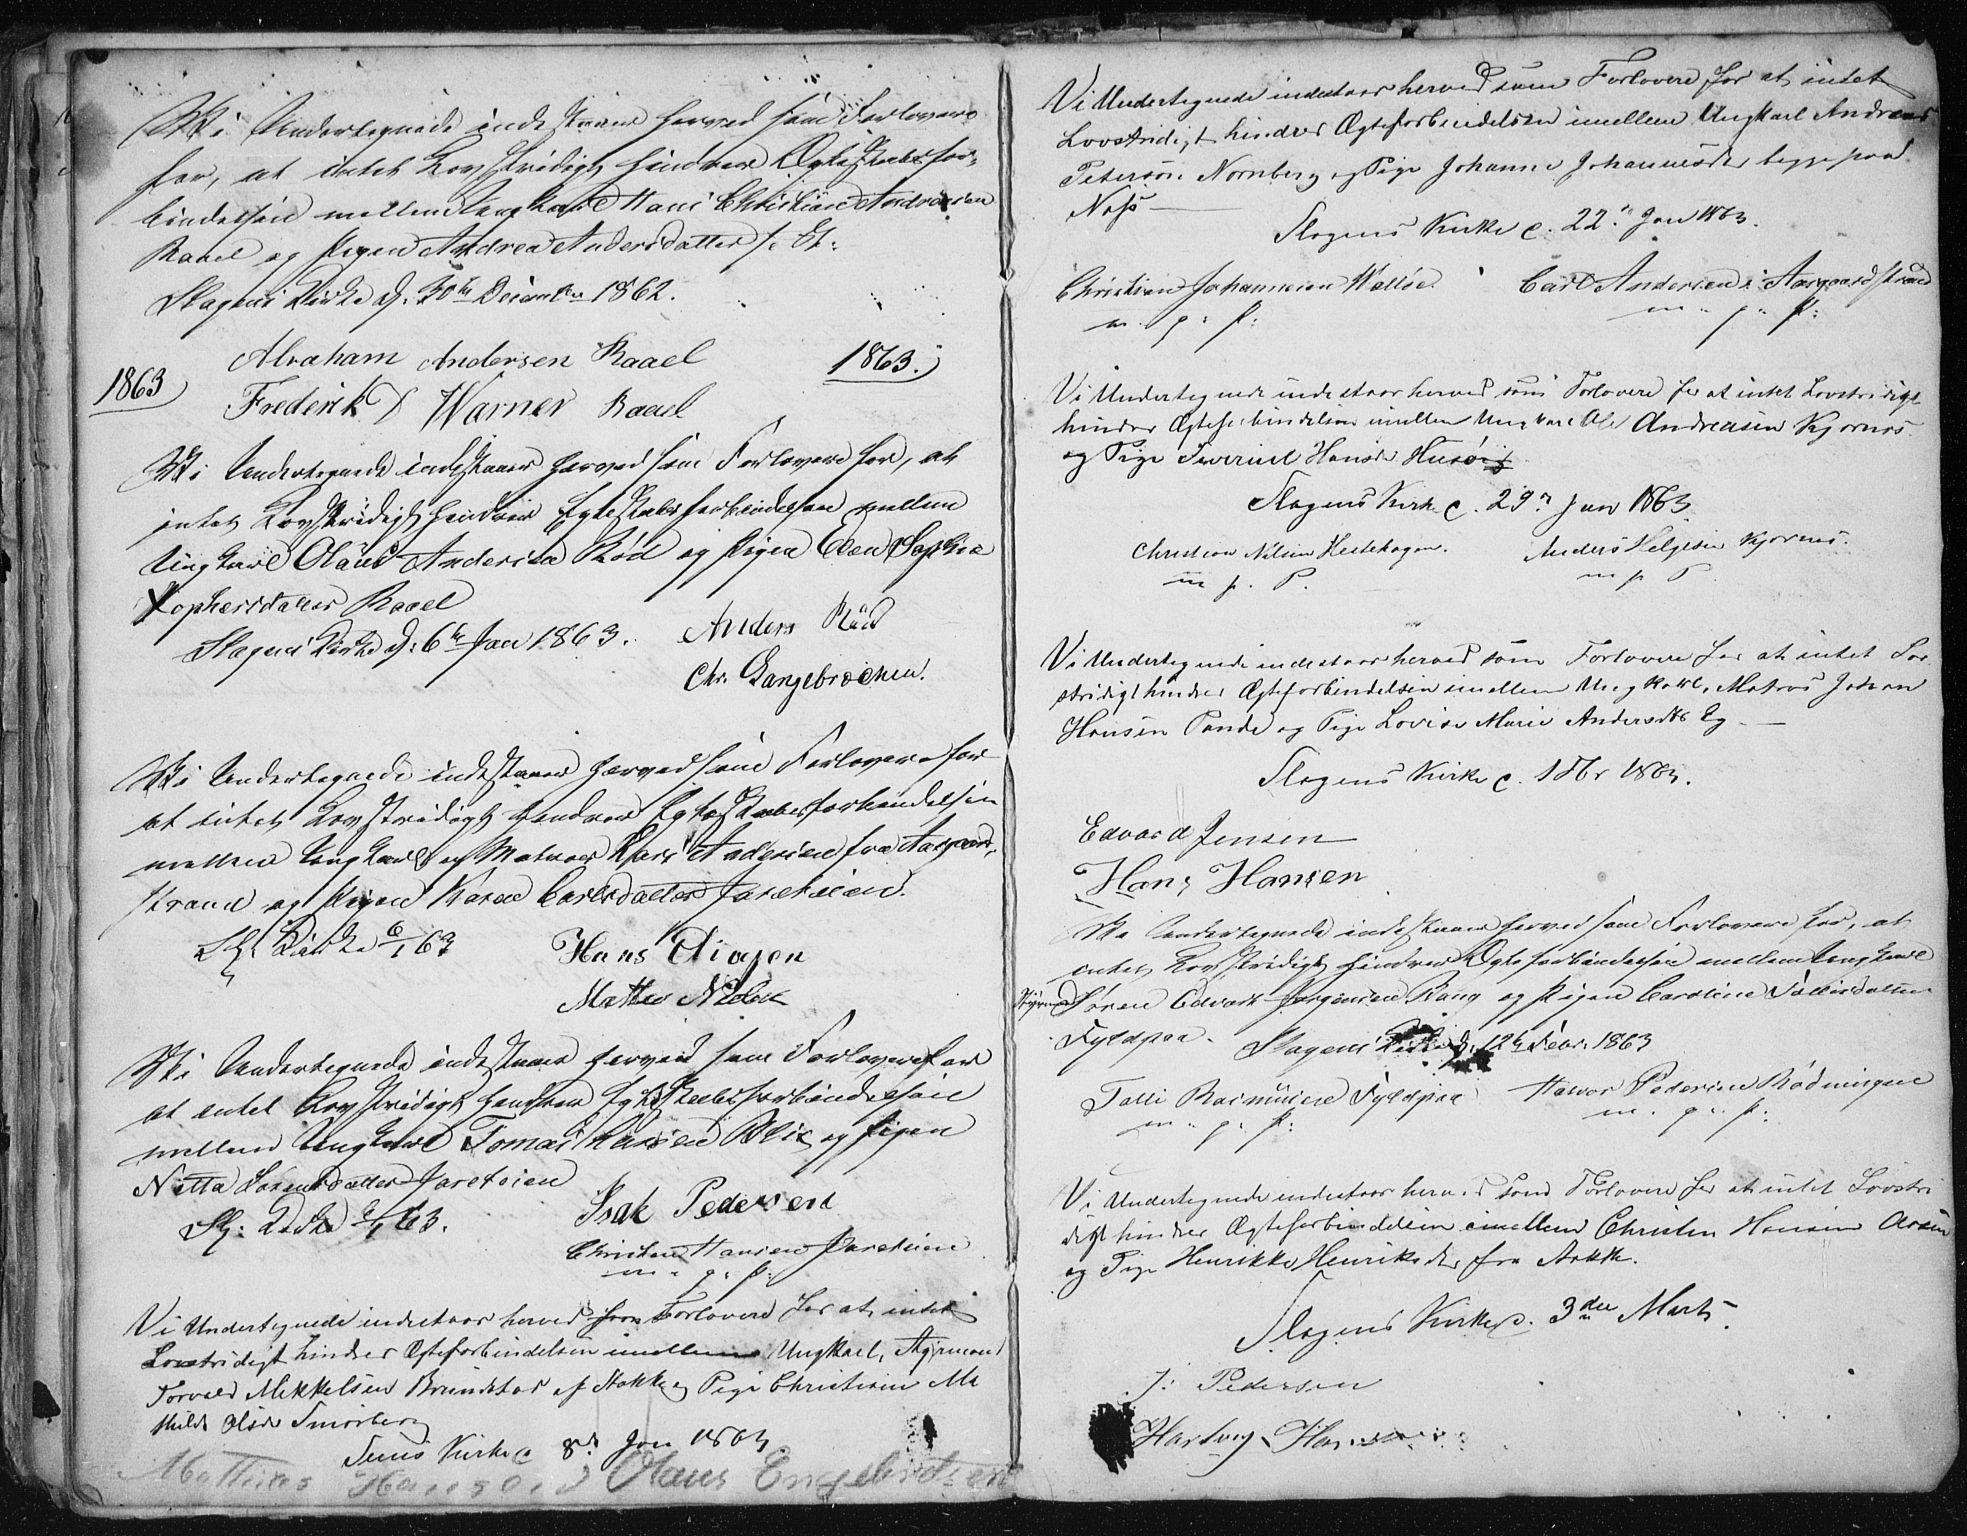 Vi Undertegnede indestaaer herved som Forlovere
for, at intet Lovstridigt hindrer Ægteskabsfor-
bindelsen mellem Ungkarl Hans Christian Andreasen
Raael og Pigen Andrea Andersdatter
Slagens Kirke d: 30te December 1862.
Abraham Andersen Raael
1863
1863.
Frederik Warner Raael
Vi Undertegnede indestaaer herved som Forlovere for, at
intet Lovstridigt hindrer Egteskabsforbindelsen mellem
Ungkarl Olaus Andersen Rød og Pigen Elen Sophie
Raael
Slagens Kirke d: 6te Jan 1863.
Anders Rød
Chr. Langebrochen.
Vi Undertegnede indestaaer herved som Forlovere for
at intet Lovstridigt hindrer Egteskabsforbindelsen
mellem Ungkarl og Matros Lars Andersen fra Aasgaard-
strand og Pigen Karen Carlsdatter Jareteien.
Sl. Kirke 6/1 63
Hans
Mattis
Vi Undertegnede indestaaer herved som Forlovere for
at intet Lovstridigt hindrer Egteskabsforbindelsen
mellem Ungkarl Tomas Larsen og Pigen
Netta Larsdatter Jareteien
Sl: Kirke 6/1 63.
Isak Pedersen
Christen Hansen Jareteien
m. p. P:
Vi Undertegnede indestaaer herved som Forlovere for at intet
Lovstridigt hindrer Ægteforbindelsen imellem Ungkarl, Styrmand
Torvald Mikkelsen Brundstad af Stokke og Pige Christiane Ma
thilde Olsdr Smørberg
Sems Kirke d 8d Jan 1863
Mathias Hansen Olaus Engebretsen
Vi Undertegnede indestaaer herved som Forlovere for at intet
Lovstridigt hindrer Ægteforbindelsen imellem Ungkarl Andreas
Petersøn Nørnberg og Pige Johanne Johannesdr begge paa
Næss
Slagens Kirke d. 22n Jan 1863.
Christian Johannesen Valløe
Carl Andersen Aasgaardstrand
m. p. P:
m. p. P:
Vi Undertegnede indestaaer herved som Forlovere for at intet Lovstridigt
hindrer Ægteforbindelsen imellem Ungkarl Ole Andreasen Kjørnes
og Pige Severine Hansdr Husøi
Slagens Kirke d. 29n Jan 1863
Christian Nilsen Hestehagen.
Anders Helgesen Kjørnes.
m. p. P.
m p P
Vi Undertegnede indestaaer herved som Forlovere for at intet Lov
stridigt hindrer Ægteforbindelsen imellem Ungkarl, Matros Johan
Hansen Tande og Pige Lovise Marie Andersdtr Eg
Slagens Kirke d. 1 Fbr 1863.
Edvard Jensen
Hans Hansen
Vi Undertegnede indestaaer herved som Forlovere for, at
intet Lovstridigt hindrer Ægteforbindelsen mellem Ungkarl
Styrmand Søren Edvard Jørgensen Rang og Pigen Caroline Tollisdatter
Fyldpaa.
Slagens Kirke d. 12te Febr. 1863
Tolli Rasmusen Fyldpaa
Halvor Pedersen Rødningen
m. p. P:
m. p. P:
Vi Undertegnede indestaaer herved som Forlovere for at intet Lovstri
digt hindrer Ægteforbindelsen imellem Christen Hansen Aasen
og Pige Henrikke Henriksdr fra Stokke.
Slagens Kirke d. 3die Marts
J: Pedersen
Hartvig Hansen